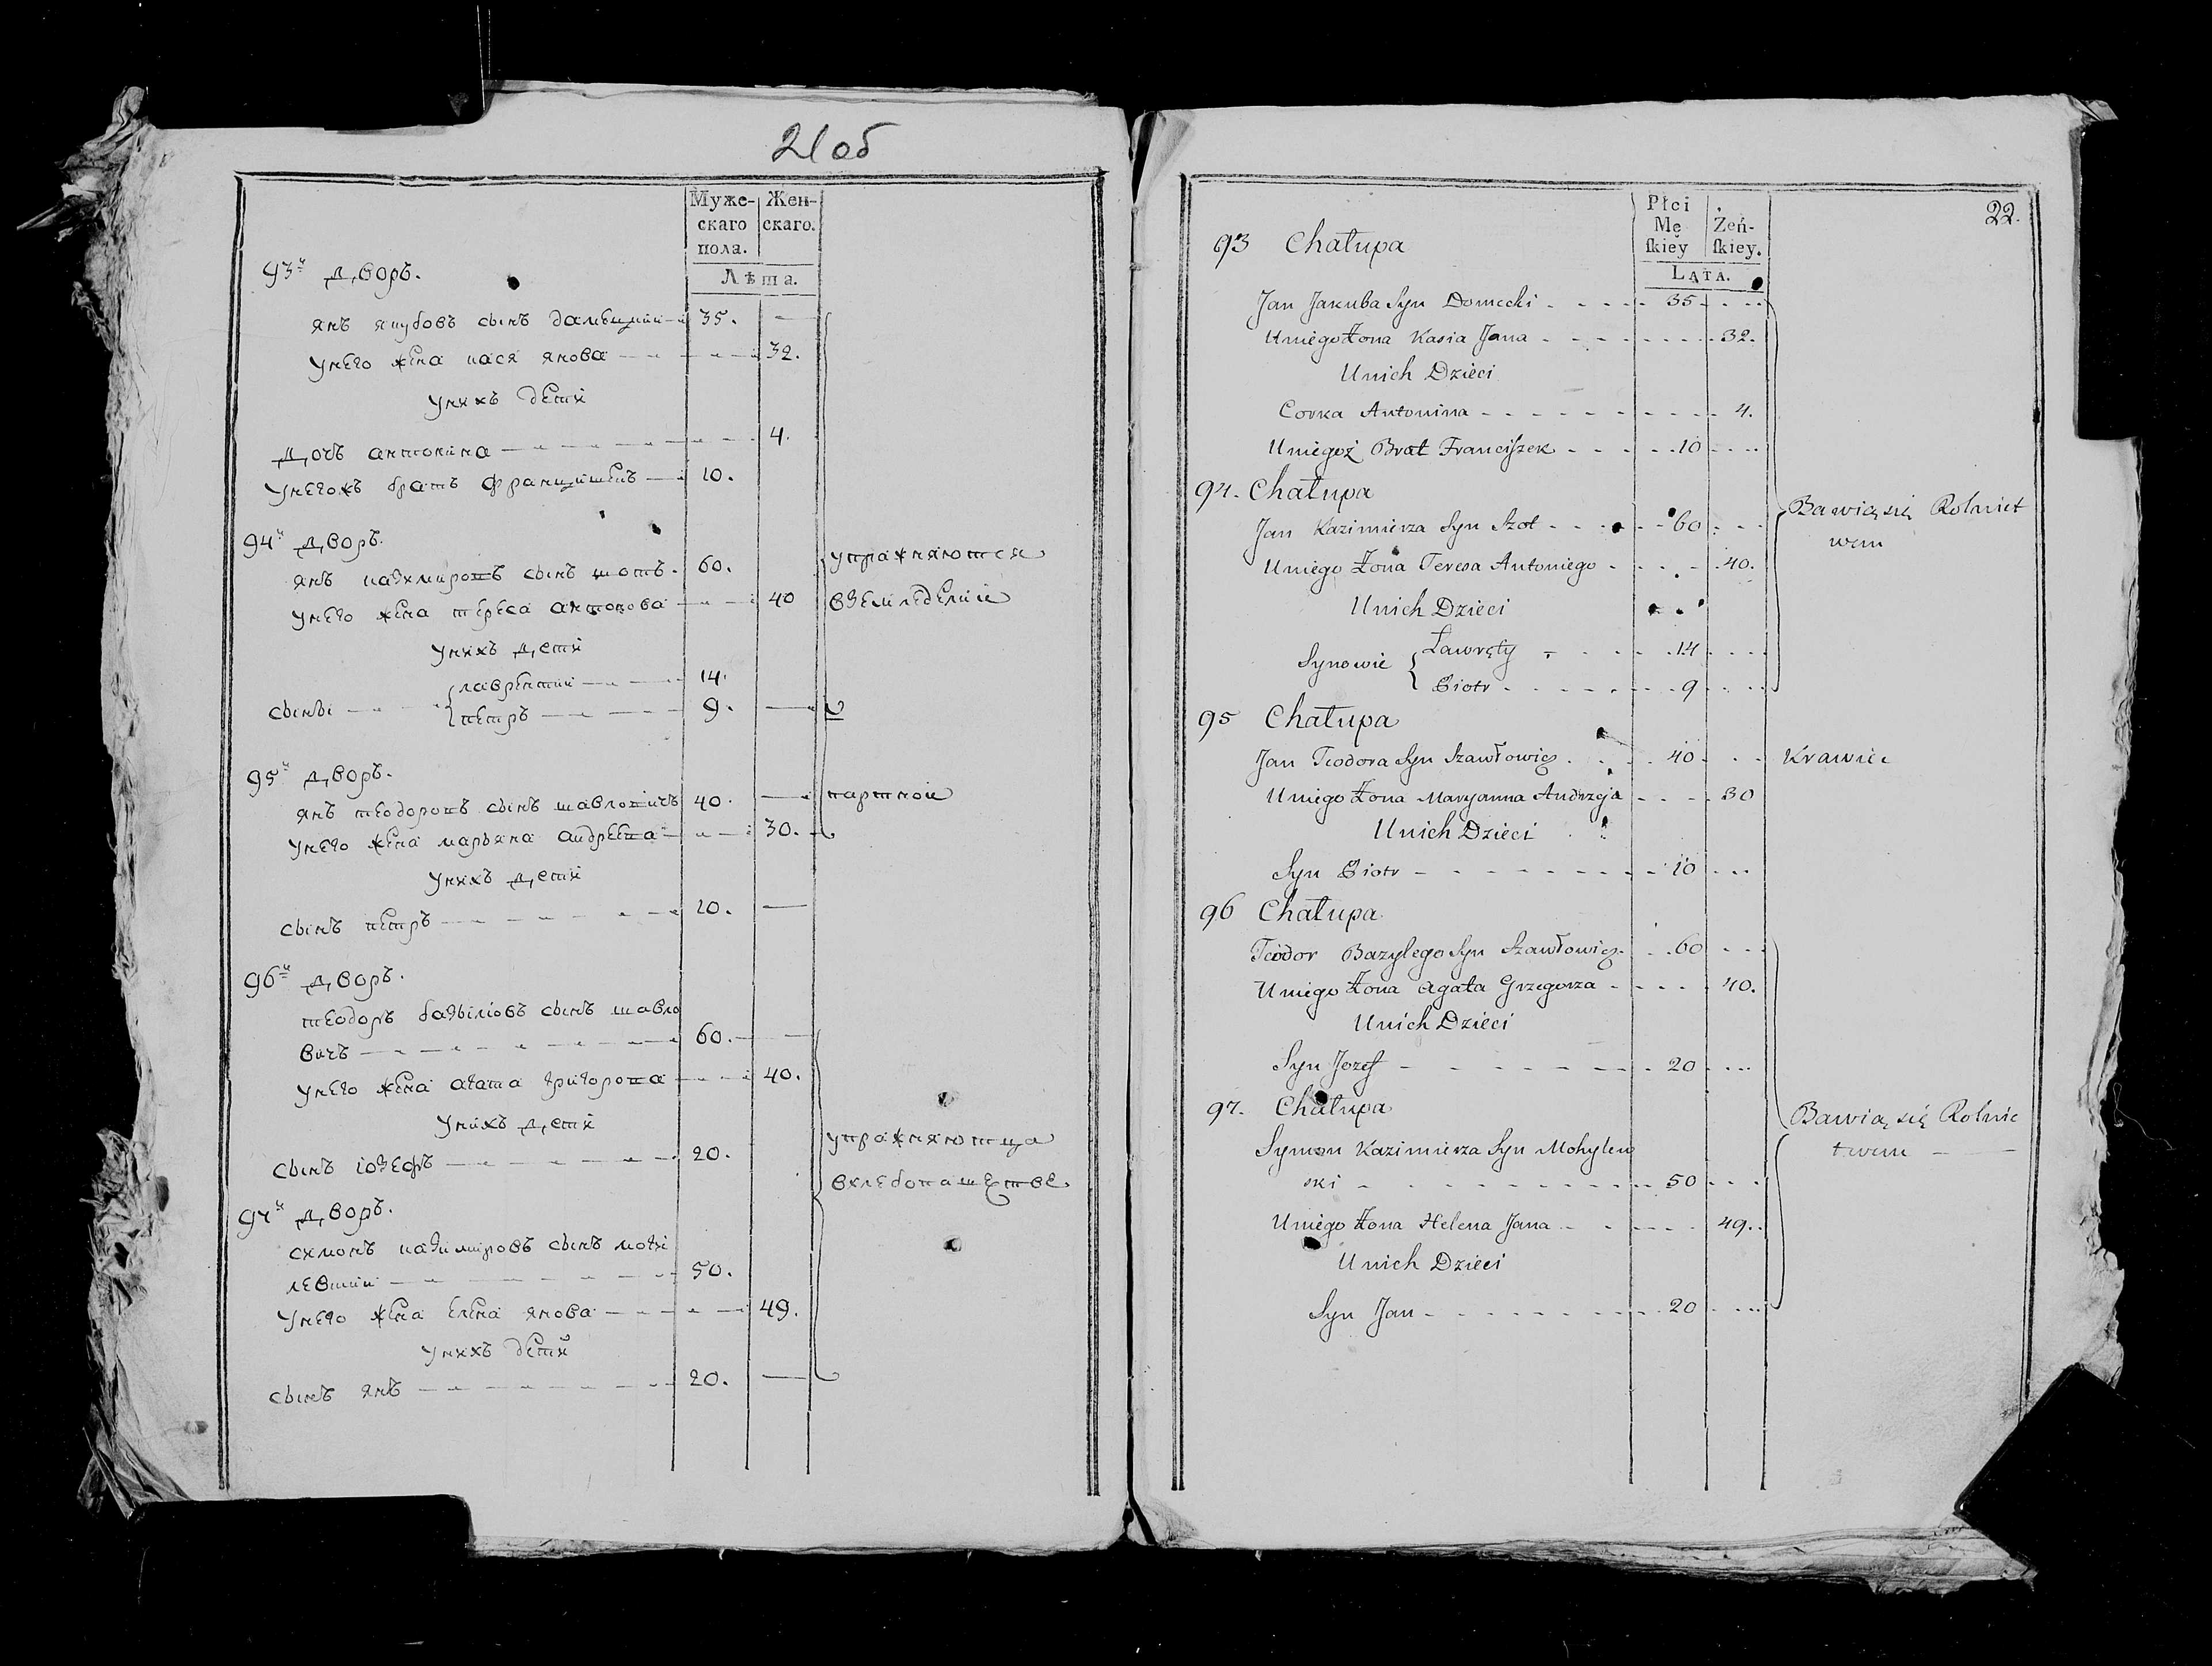 21 об
Муже-
скаго
пола.
Жен-
скаго.
Лѣта.
93й дворъ.
янъ якубовъ сынъ домецкий 35. —
унего жена кася янова 32.
унихъ дети
дочъ антонина 4.
унегожъ братъ францишекъ 10.
94й дворъ.
янъ казимировъ сынъ шотъ. 60.
унего жена тереса антонова 40
упражняются
вземледелии
унихъ дети
лаврентии 14.
сыны
петръ 9. —
95й дворъ.
янъ теодоровъ сынъ шавловичъ 40. — партной
унего жена марьяна андреева 30.
унихъ дети
сынъ петръ 10. —
96й дворъ.
теодоръ базылиовъ сынъ шавло
вичъ 60. —
унего жена агата григорова 40.
унихъ дети
упражняютца
сынъ іозефъ 20.
вхлебопашестве
97й дворъ.
симонъ казимировъ сынъ моги
левский 50.
унего жена елена янова 49.
унихъ дети
сынъ янъ 20. —
22.
Płci
Mę
skiey
Żeń-
skiey.
LATA.
93 Chałupa
Jan Jakuba Syn Domecki 35
Uniego Żona Kasia Jana 32.
Unich Dzieci
Corka Antonina 4.
Uniegoż Brat Franciszek 10
94. Chałupa
Jan Kazimierza Syn Szot 60
Bawią się Rolnict
wem
Uniego Żona Teresa Antoniego 40.
Unich Dzieci
Synowie
Ławręty 14
Piotr 9
95 Chałupa
Jan Teodora Syn Szawłowicz 40 Krawiec
Uniego Żona Maryanna Andrzeja 30
Unich Dzieci
Syn Piotr 10
96 Chałupa
Teodor Bazylego Syn Szawłowicz 60
Uniego Żona Agata Grzegorza 40.
Unich Dzieci
Syn Jozef 20
97. Chałupa
Bawią się Rolnic
twem
Symon Kazimierza Syn Mohylew
ski 50
Uniego Żona Helena Jana 49.
Unich Dzieci
Syn Jan 20